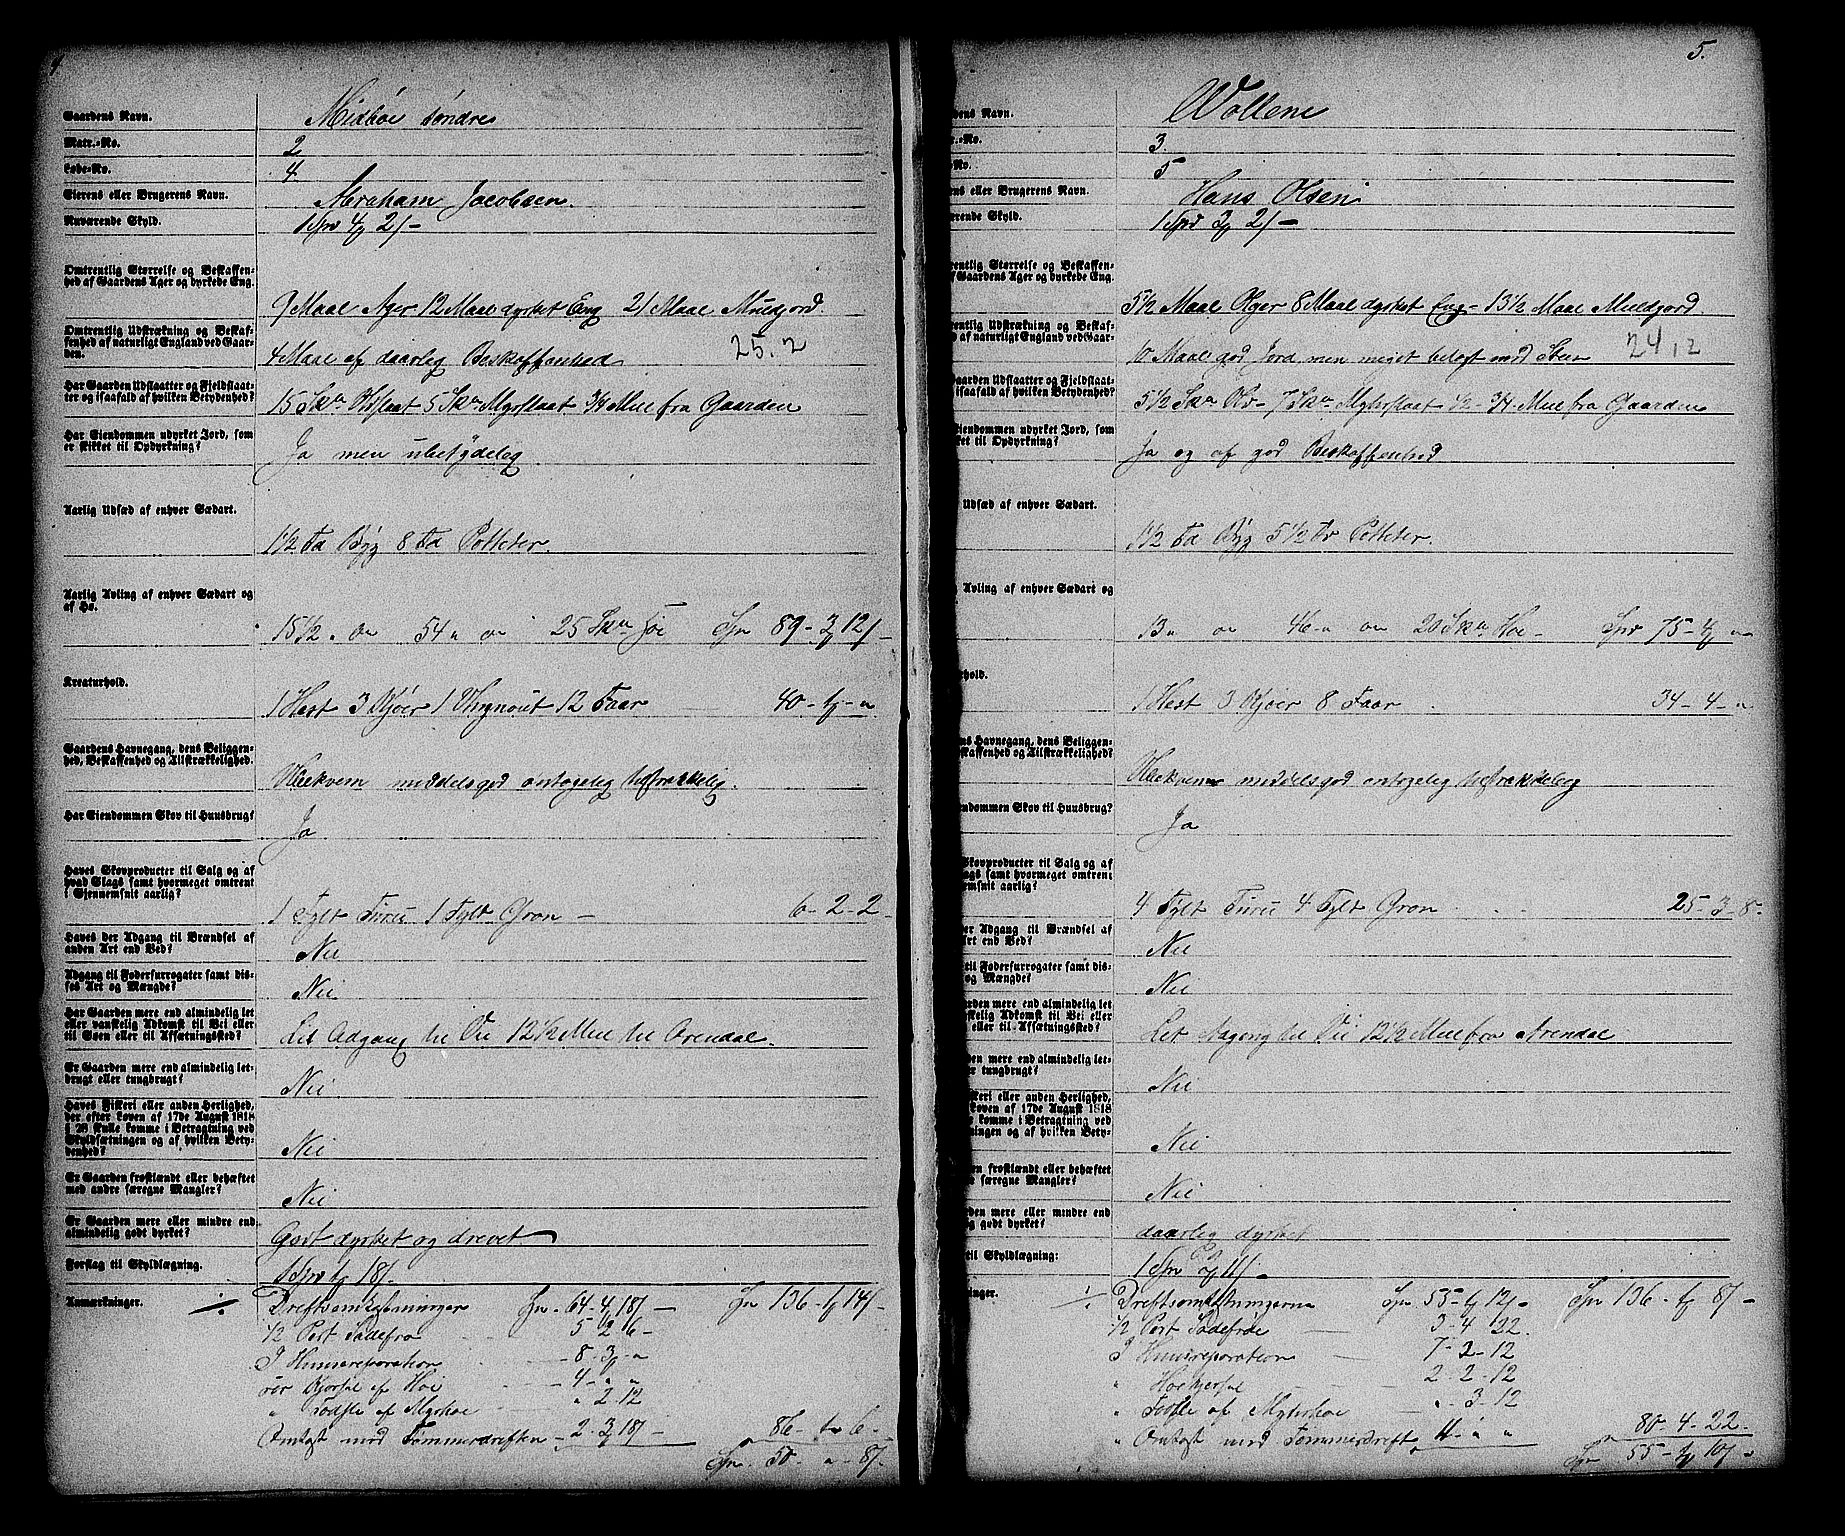 4.
Gaardens Navn. Midböe söndre
Matr.-No. 2
Løbe-No. 4.
Eierens eller Brugerens Navn. Abraham Jacobsen.
Nuværende Skyld. 1 Spd 4 2/-
Omtrentlig Størrelse og Beskaffen-
hed af Gaardens Ager og dyrkede Eng. 9 Maal Ager 12 Maal dyrket Eng 21 Maal Muldjord
Omtrentlig Udstrækning og Beskaf-
fenhed af naturligt England ved Gaar-
den. 4 Maal af daarlig Beskaffenhed 25.2
Har Gaarden Udslaatter og Fjeldslaat-
ter og isaafald af hvilken Betydenhed? 15 Skr 5 Skr Myrslaat 3/4 Miil fra Gaarden
Har Eiendommen udyrket Jord, som
er skikket til Opdyrkning? Ja men ubetydelig
Aarlig Udsæd af enhver Sædart. 1 1/2 Td Byg 8 Td Potteter.
Aarlig Avling af enhver Sædart og
af Hø. 15 1/2 " " 54 " " 25 Skr Høe Spd 89 - 3 12/-
Kreaturhold. 1 Hest 3 Kjöer 1 Ungnout 12 Faar 40 - " - "
Gaardens Havnegang, dens Beliggen-
hed, Beskaffenhed og Tilstrækkelighed. middelsgod antagelig tilstrækkelig.
Har Eiendommen Skov til Huusbrug? Ja
Haves Skovproducter til Salg og af
hvad Slags samt hvormeget omtrent
i Gjennemsnit aarlig? 1 Tylt Furu 1 Tylt Gran - 6 - 2 - 2
Haves der Adgang til Brændsel af
anden Art end Ved? Nei
Adgang til Fodersurrogater samt dis-
ses Art og Mængde? Nei
Har Gaarden mere end almindelig let
eller vanskelig Adkomst til Vei eller
til Søen eller til Afsætningssted? Let Adgang til Vei 12 1/2 Miil til Arendal.
Er Gaarden mere end almindelig let-
drugt eller tungbrugt? Nei
Haves Fiskeri eller anden Herlighed,
der efter Loven af 17de August 1818
§ 29 skulle komme i Betragtning ved
Skyldsætningen og af hvilken Bety-
denhed? Nei
Er Gaarden frostlændt eller behæftet
med andre særegne Mangler? Nei
Er Gaarden mere eller mindre end
almindelig godt dyrket? Godt dyrket og drevet
Forslag til Skyldlægning. 1 Spd 18/-
Anmærkninger. Driftsomkostninger Spd 64 - 4 18/- Spd 136 - 14/-
1/2 Part Sædefrø 5 2 6 -
Huusreparation - 8 - 3 - "
Kjørsel af Høe - 4 - " "
" Tørfsle af Myrhøe " 2 - 12
Omkost med Tømmerdriften - 2 - 3 18/- 86 - " 6 -
Spd 50 - " - 8/-
5.
dens Navn. Wollene
r.-No. 3.
No. 5
ens eller Brugerens Navn. Hans Olsen
rende Skyld. 1 Spd 3 2/-
rentlig Størrelse og Beskaffen-
f Gaardens Ager og dyrkede Eng. 5 1/2 Maal Ager 8 Maal dyrket Eng - 13 1/2 Maal Muldjord.
rentlig Udstrækning og Beskaf-
d af naturligt England ved Gaar- 10 Maal god Jord men meget belagt med Steen 24,2
Gaarden Udslaatter og Fjeldslaat-
isaafald af hvilken Betydenhed? 5 1/2 Skr - 7 Skr Myrslaat 1/2 - 3/4 Miil fra Gaarden
Eiendommen udyrket Jord, som
ket til Opdyrkning? Ja og af god Beskaffenhed
Udsæd af enhver Sædart. 1 1/2 Td Byg 5 1/2 Td Potteter.
Avling af enhver Sædart og 13 " " 46 " " 20 Skr Høe - Spd 75 - 4 "
rhold. 1 Hest 3 Kjöer 8 Faar 34 - 4 - "
ens Havnegang, dens Beliggen-
eskaffenhed og Tilstrækkelighed? middelsgod antagelig tilstrækkelig
endommen Skov til Huusbrug? Ja
Skovproducter til Salg og af
lags samt hvormeget omtrent
nemsnit aarlig? 4 Tylt Furu 4 Tylt Gran 25 - 3 - 8 -
der Adgang til Brændsel af
Art end Ved? Nei
til Fodersurrogater samt dis-
og Mængde? Nei
arden mere end almindelig let
skelig Adkomst til Vei eller
eller til Afsætningssted? Let Adgang til Vei 12 1/2 Miil fra Arendal
den mere end almindelig let-
t eller tungbrugt? Nei
iskeri eller anden Herlighed,
Loven af 17de August 1818
komme i Betragtning ved
ningen og af hvilken Bety- Nei
den frostlændt eller behæftet
særegne Mangler? Nei
den mere eller mindre end
g godt dyrket? daarlig dyrket
til Skyldlægning: 1 Spd 11/-
ninger. Driftsomkostningerne Spd 55 - 12/- Spd 136 - 8/-
1/2 Part Sædefrøe 3 - 4 22.
Huusreparation 7 - 2 - 12
" Høekjørsel 2 - 2 - 12
" Tørfsle af Myrhøe " - 3 - 12
" Omkost med Tømmerdrift 11 - " " 80 - 4 - 22 -
Spd 55 - 10/-